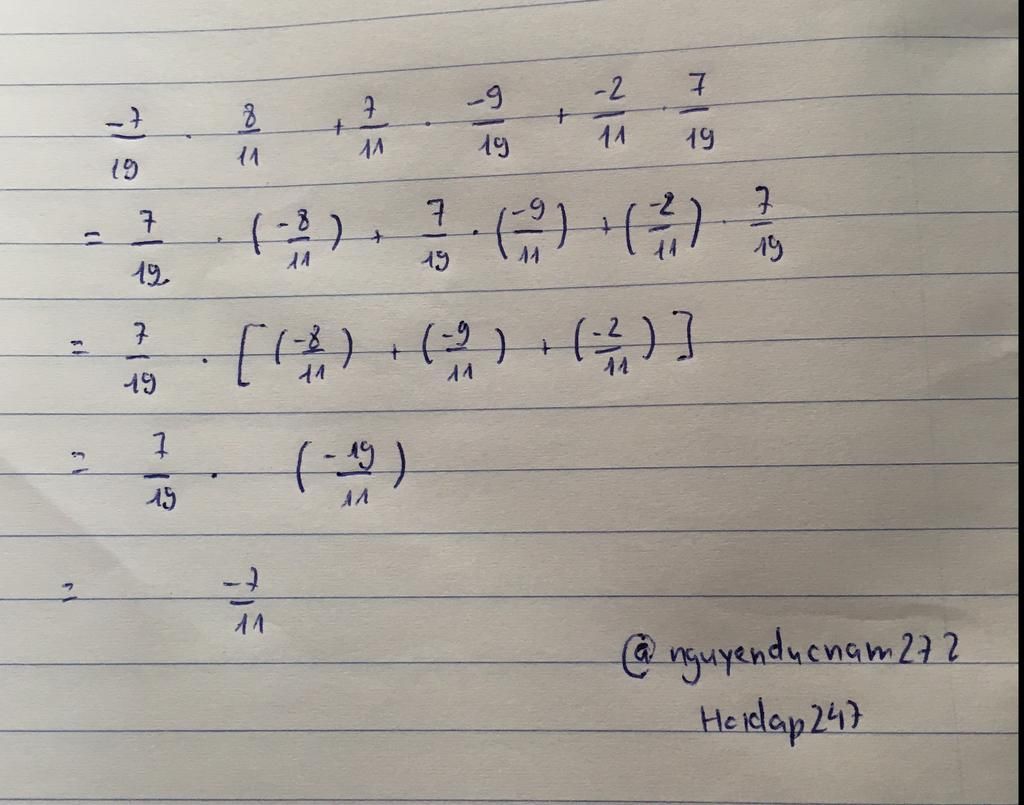 -7/19 . 8/11 + 7/11 . -9/19 + -2/11 . 7/19
= 7/19 . (-8/11) + 7/19 . (-9/11) + (-2/11) . 7/19
= 7/19 . [(-8/11) + (-9/11) + (-2/11)]
= 7/19 . (-19/11)
= -7/11
@nguyenducnam272
Hoidap247